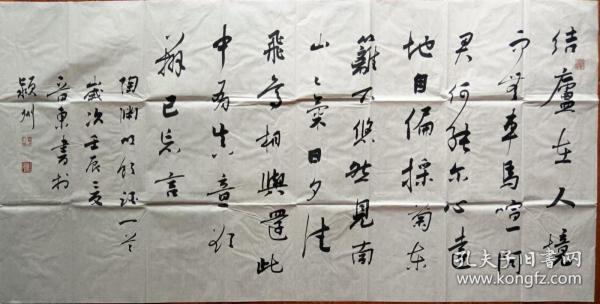 結廬在人境
而無車馬喧问
君何能尔心遠
地自偏採菊东
籬下悠然見南
山々氣日夕佳
飛鳥相與還此
中有真意欲
辨已忘言
陶渊明饮酒一首
歲次壬辰之夏
晋東書於
颖州
孔夫子旧书网
www.kongfz.com